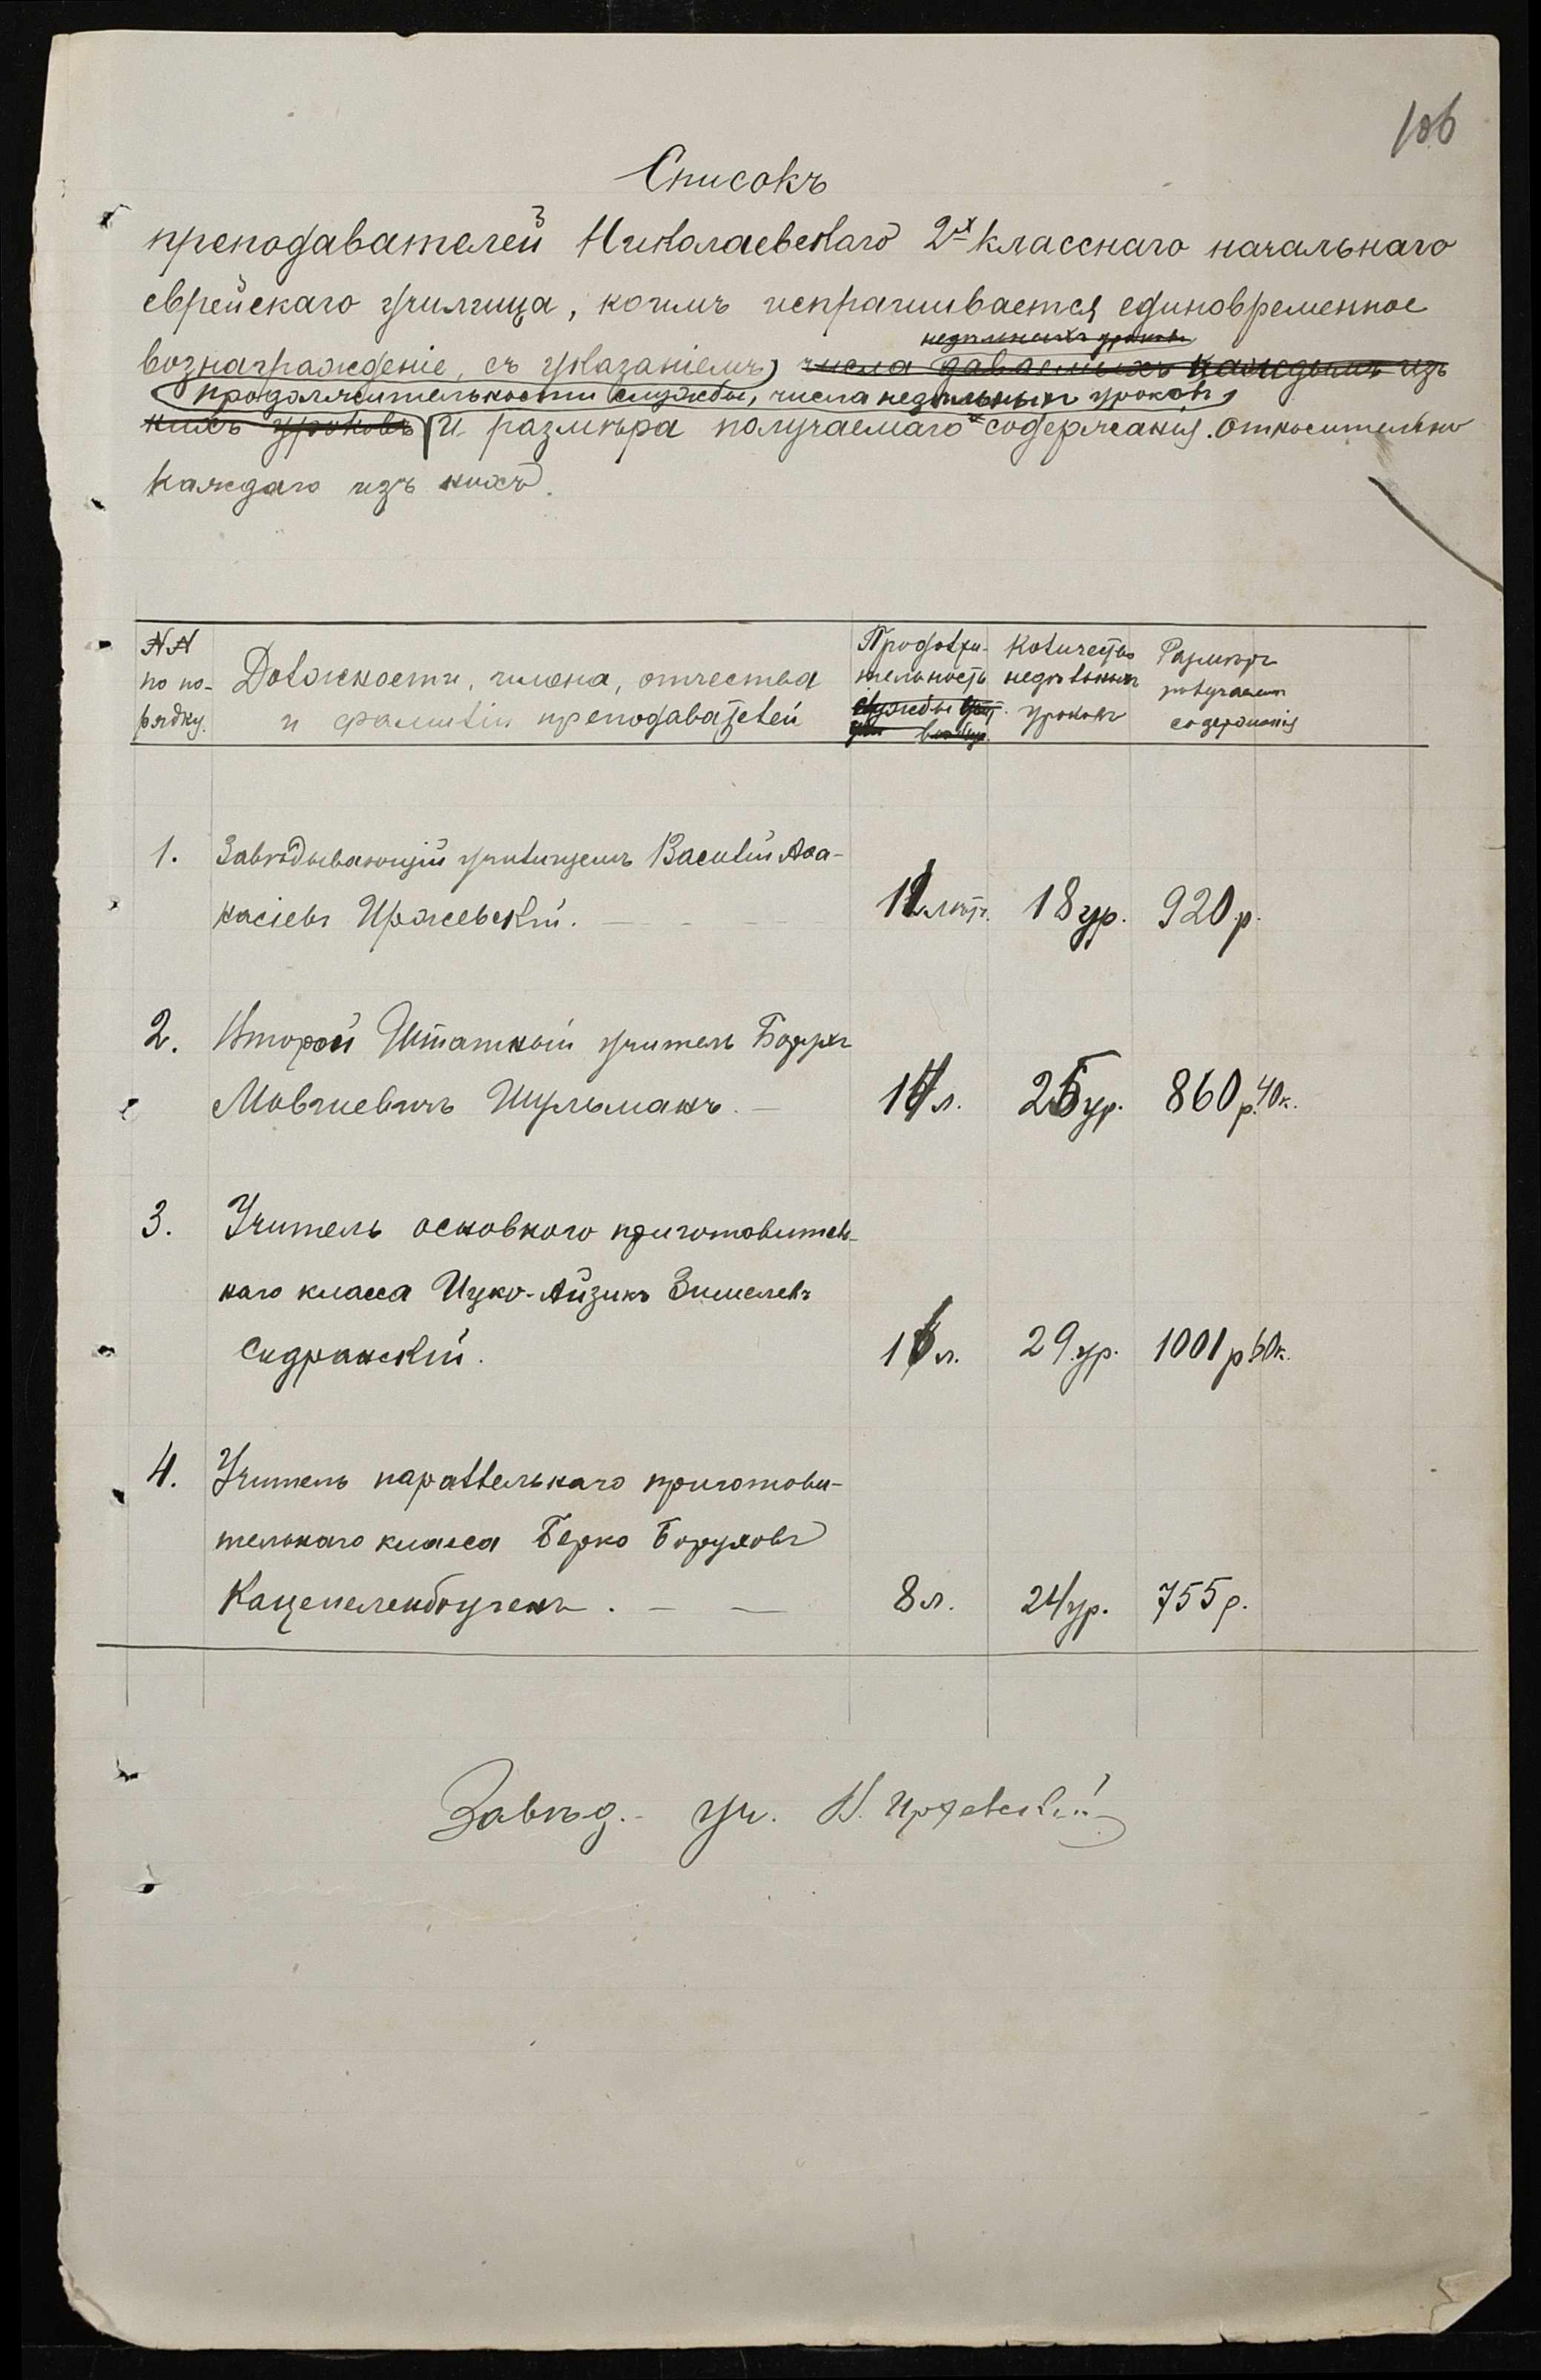 106
Списокъ
преподавателей Николаевскаго 2х класснаго начальнаго
еврейскаго училища, коимъ испрашивается единовременное
недѣльныхъ уроковъ
вознагражденіе, съ указаніемъ числа даваемыхъ каждымъ изъ
продолжительности службы, числа недѣльныхъ уроковъ,
нихъ уроковъ и размѣра получаемаго содержанія относительно
каждаго изъ нихъ.
№№ по порядку.
Должности, имена, отчества
и фамиліи преподавателей
Продолжи-
тельность
службы
Количество
недѣльныхъ
уроковъ
Размѣръ
получаем
содержанія
1. Завѣдывающій училищемъ Василій Аѳа-
насіевъ Иржевскій. лѣтъ. 18 ур. 920 р.
2. Второй Штатный учитель Борухъ
Мовшевичъ Шульманъ. л. ур. 860 р. 40 к.
3. Учитель основного приготовитель-
наго класса Ицко-Айзикъ Зимелевъ
Сидранскій. л. 29 ур. 1001 р 60 к.
4. Учитель параллельнаго приготови-
тельнаго класса Берко Боруховъ
Каценеленбогенъ. 8 л. 24 ур. 755 р.
Завѣд. уч. В. Иржевскій